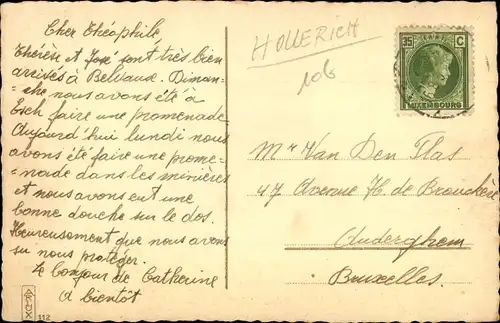 Cher Théophile,
Thérèse et José sont très bien
arrivés à Belvaux. Diman-
che nous avons été à
Esch faire une promenade
Aujourd'hui lundi nous
avons été faire une prome-
nade dans les minières
et nous avons eut une
bonne douche sur le dos.
Heureusement que nous avons
su nous protéger.
Le bonjour de Catherine
A bientôt
HOLLERICH
106
35 C
LUXEMBOURG
Mr Van Den Plas
47 Avenue H. de Brouckère
Auderghem
Bruxelles.
112